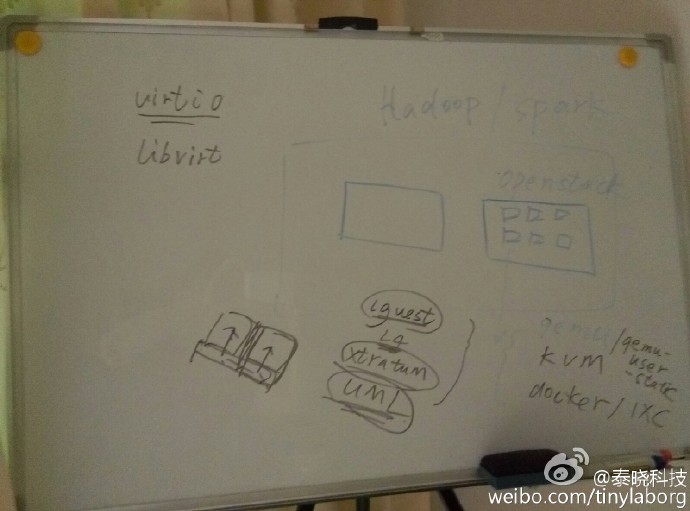 virtio
libvirt
Hadoop/spark
openstack
lguest
xtratum
UML
qemu/qemu-user-static
kvm
docker/lXC
@泰晓科技
weibo.com/tinylaborg